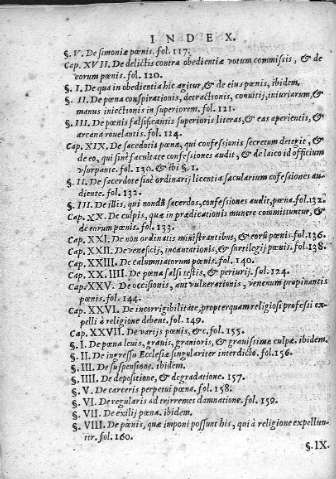 INDEX.
§. V. De simoniæ pœnis. fol. 117.
Cap. XVII. De delictis contra obedientiæ votum commissis, & de
eorum pœnis. fol. 120.
§. I. De qua in obedientia hic agitur, & de eius pœnis, ibidem.
§. II. De pœna conspirationis, detractionis, conuitij, iniuriarum, &
manus iniectionis in superiorem. fol. 121.
§. III. De pœnis falsificantis superioris literas, & eas aperientis, &
arcana reuelantis. fol. 124.
Cap. XIX. De sacerdotis pœna, qui confessionis secretum detegit, &
de eo, qui sine facultate confessiones audit, & de laico id officium
vsurpante. fol. 130. & ibi §. 1.
§. II. De sacerdote sine ordinarij licentia sæcularium cōfessiones au-
diente. fol. 132.
§. III. De illis, qui nondū sacerdos, confessiones audit, pœna. fol. 132.
Cap. XX. De culpis, quæ in prædicationis munere committuntur, &
de earum pœnis. fol. 133.
Cap. XXI. De non ordinatis ministrantibus, & eorū pœnis. fol. 136.
Cap. XXII. De veneficij, incantationis, & sortilegij pœnis. fol. 138.
Cap. XXIII. De calumniatorum pœnis. fol. 140.
Cap. XX.IIII. De pœna falsi testis, & periurij. fol. 124.
Cap. XXV. De occisionis, aut vulnerationis, venenum propinantis
pœnis. fol. 144.
Cap. XXVI. De incorrigibilitate, propter quam religiosi professi ex-
pelli à religione debent. fol. 149.
Cap. XXVII. De varijs pœnis, & c. fol. 155.
§. I. De pœna leuis, grauis, grauioris, & grauissimæ culpæ. ibidem.
§. II. De ingressu Ecclesiæ singulariter interdicto. fol. 156.
§. III. De suspensione. ibidem.
§. IIII. De depositione, & degradatione. 157.
§. V. De carceris perpetui pœna. fol. 158.
§. VI. De regularis ad trirremes damnatione. fol. 159.
§. VII. De exilij pœna. ibidem.
§. VIII. De pœnis, quæ imponi possunt his, qui à religione expellun-
tur. fol. 160.
§. IX.